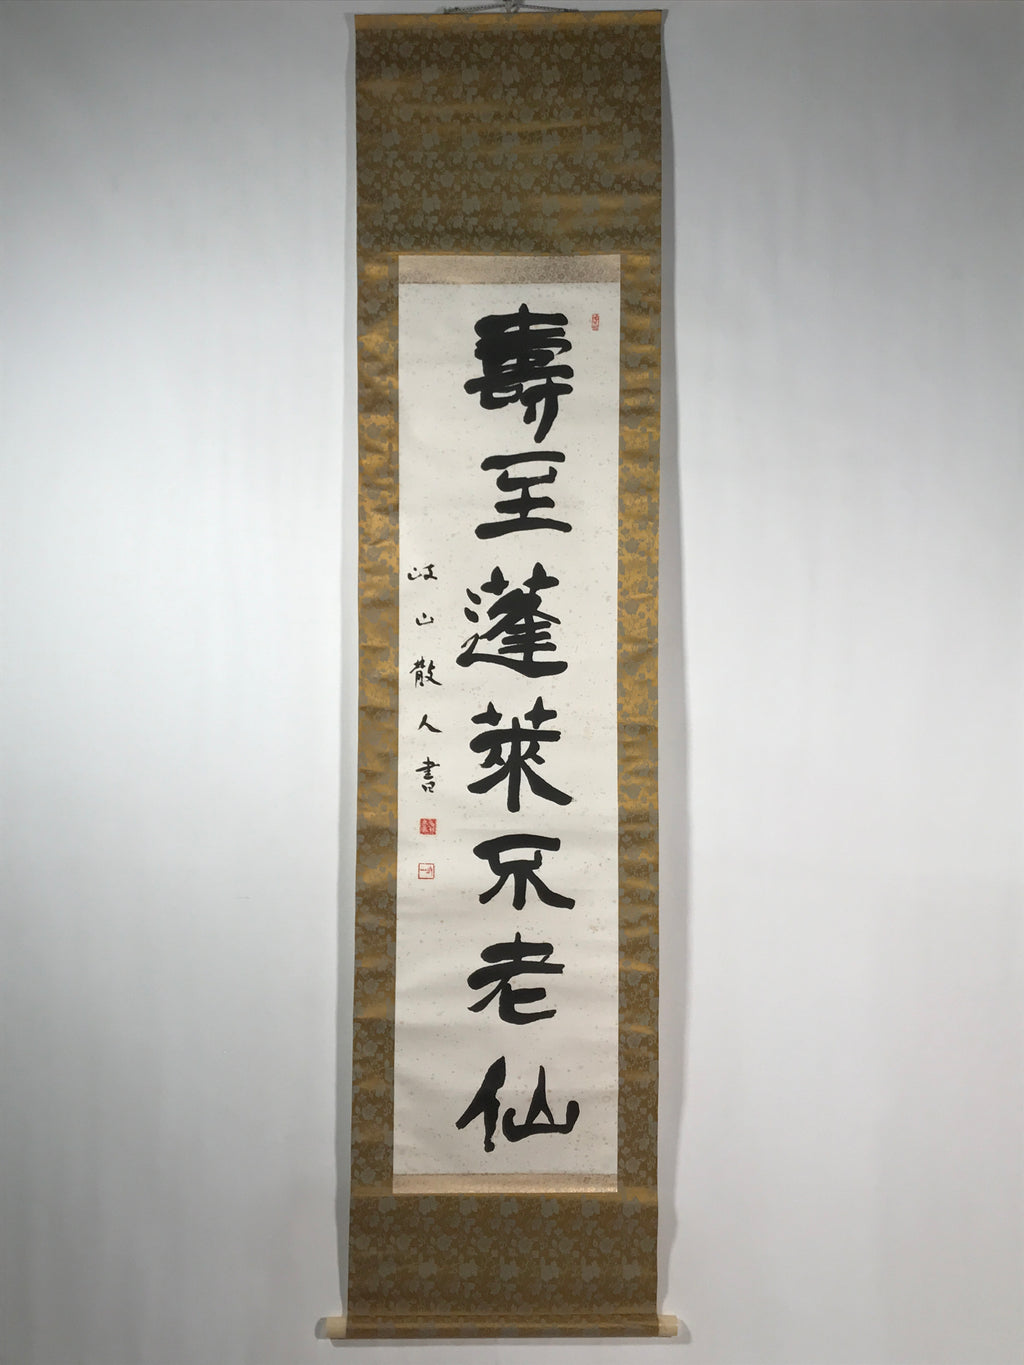 壽至蓬萊不老仙
岐山散人書